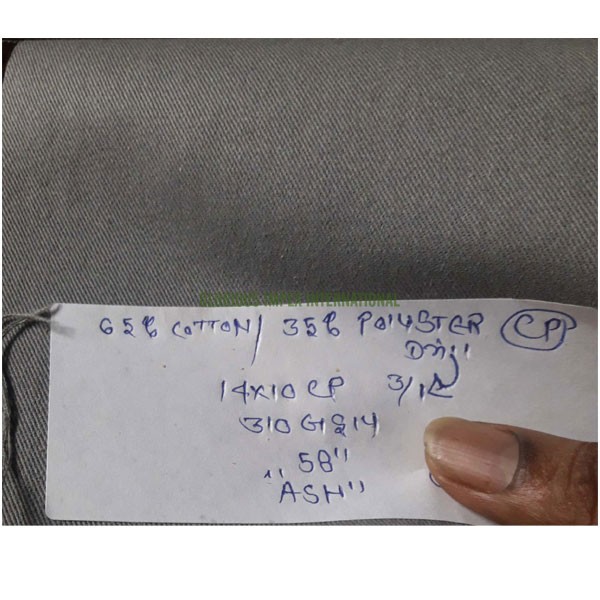 65% COTTON / 35% POLYSTER CP
Drill
14x10 CP 3/1
310
58"
"ASH"